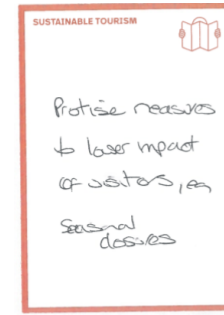 SUSTAINABLE TOURISM
Protise measures
to loser impact
of visitors, eg
Seasonal
closures